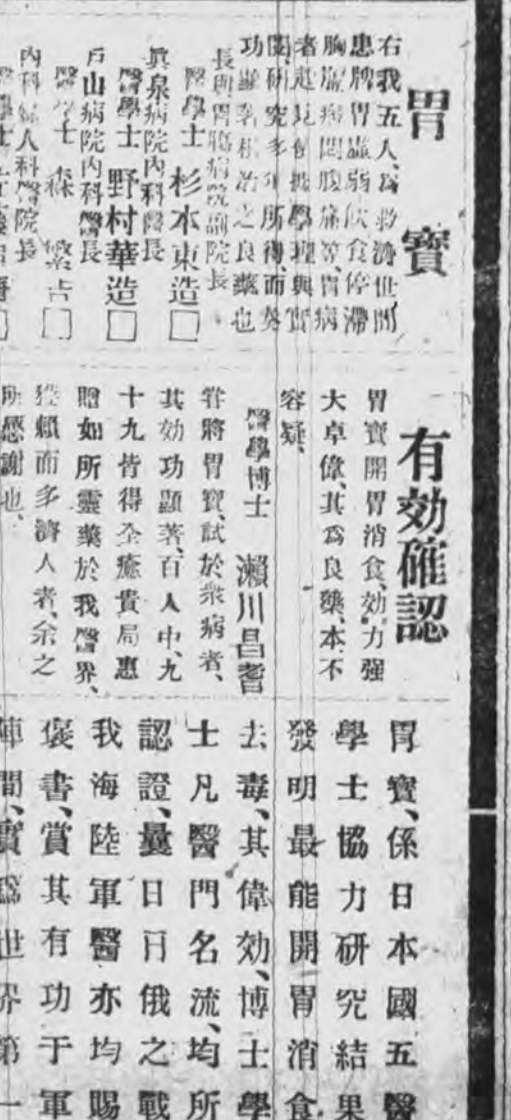 胃寶
右我五人、為救濟世間
患脾胃虛弱飲食停滯
胸腹痛悶腹痛等、胃病
者起見 學理與實
研究多年所得、而奏
功 之良藥也
長與胃腸病院副院長
醫學士 杉本東造□
眞泉病院內科醫長
醫學士 野村華造□
戶山病院內科醫長
醫學士 森 繁吉□
內科婦人科醫院長
有効確認
胃寶開胃消食、効力强
大卓偉、其爲良藥、本不
容疑、
醫學博士 瀨川昌耆
甞將胃寶、試於衆病者、
其効功顯著、百人中、九
十九皆得全癒貴局惠
贈如所靈藥於我醫界、
賴而多濟人者、余之
所感謝也、
胃寶、係日本國五醫
學士協力研究結果
發明最能開胃消食
去毒、其偉効、博士學
士凡醫門名流、均所
認證、曩日日俄之戰
我海陸軍醫亦均賜
褒書、賞其有功于軍
陣間、實爲世界第一